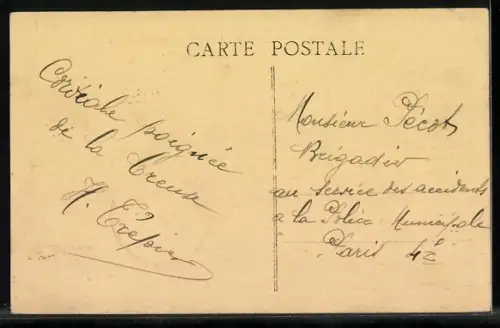 CARTE POSTALE
Cordiale poignée
de la Creuse
H. Trépier
Monsieur Pécot
Brigadier
au Service des accidents
a la Police Municipale
Paris 4e